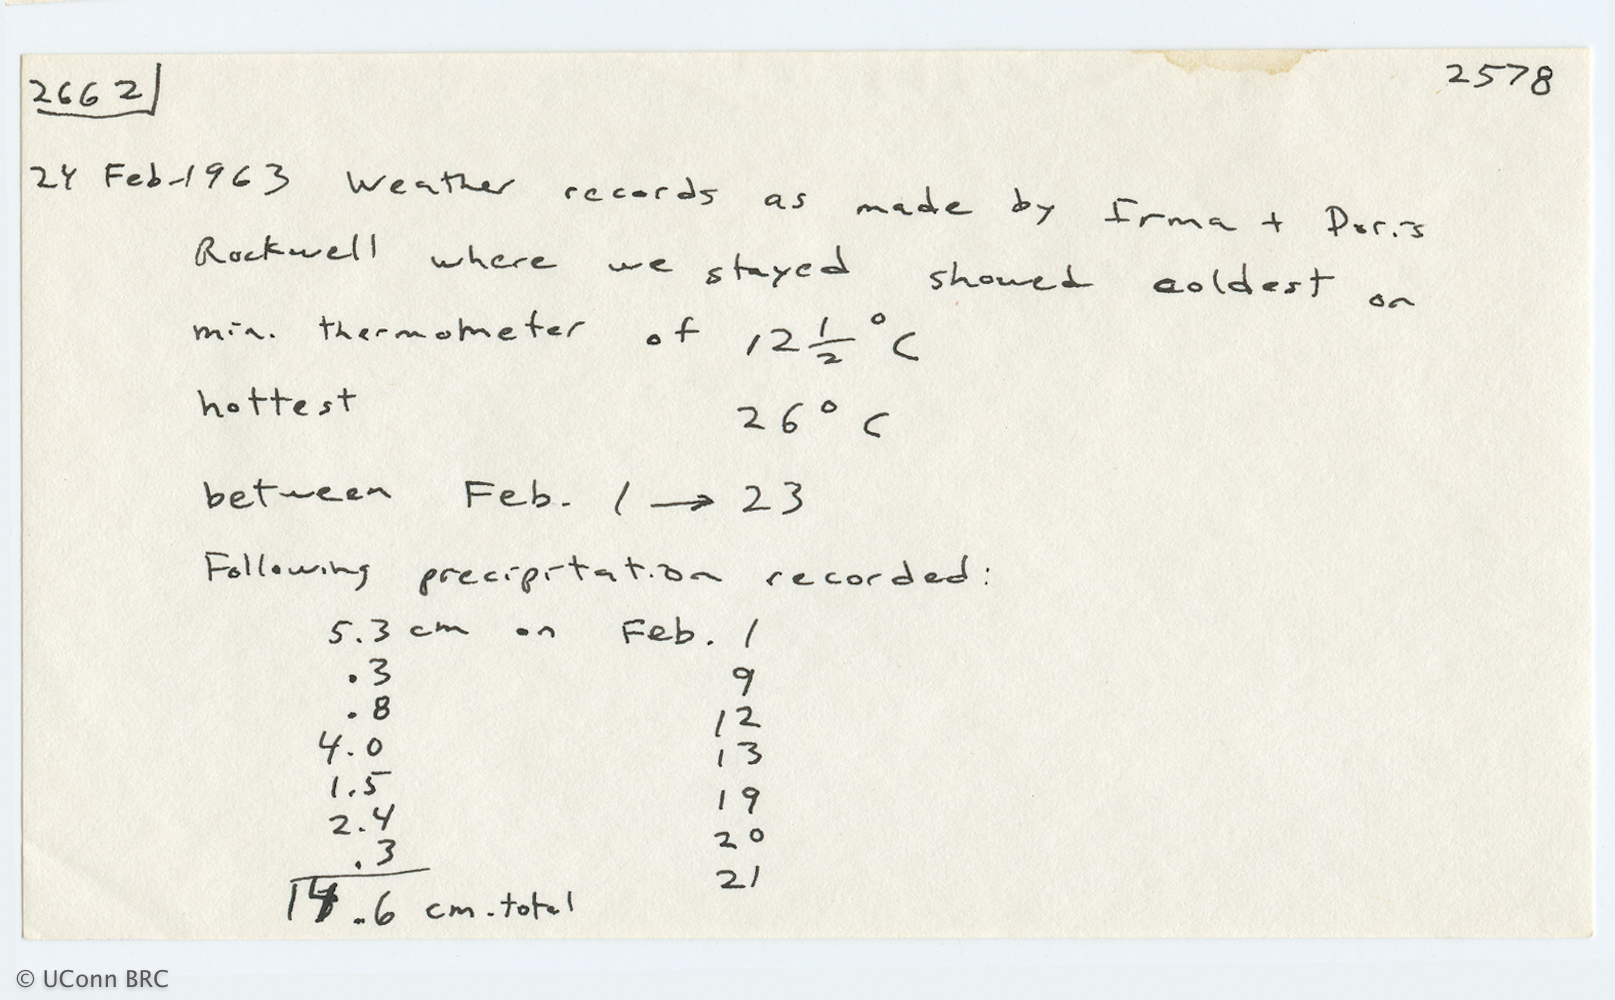 2662
2578
24 Feb-1963 Weather records as made by Irma + Doris
Rockwell where we stayed showed coldest on
min. thermometer of 12 1/2 °C
hottest 26° C
between Feb. 1 → 23
Following precipitation recorded:
5.3 cm on Feb. 1
.3 9
.8 12
4.0 13
1.5 19
2.4 20
.3 21
14.6 cm. total
© UConn BRC